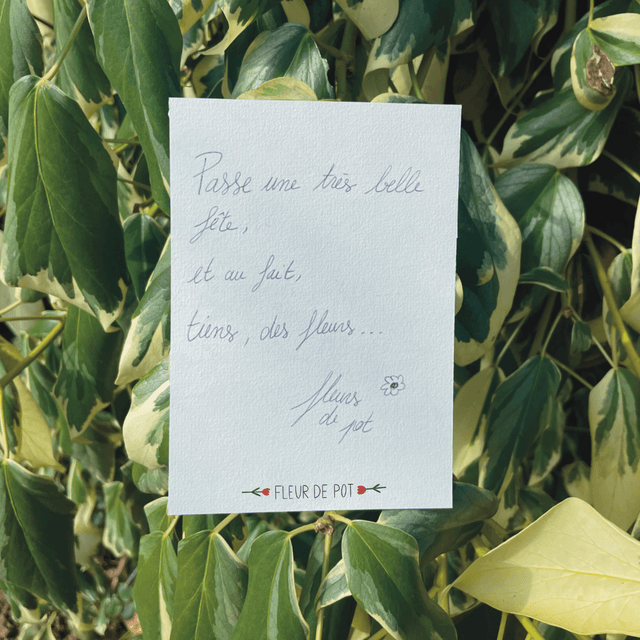 Passe une très belle
fête,
et au fait,
tiens, des fleurs...
fleurs
de pot
FLEUR DE POT